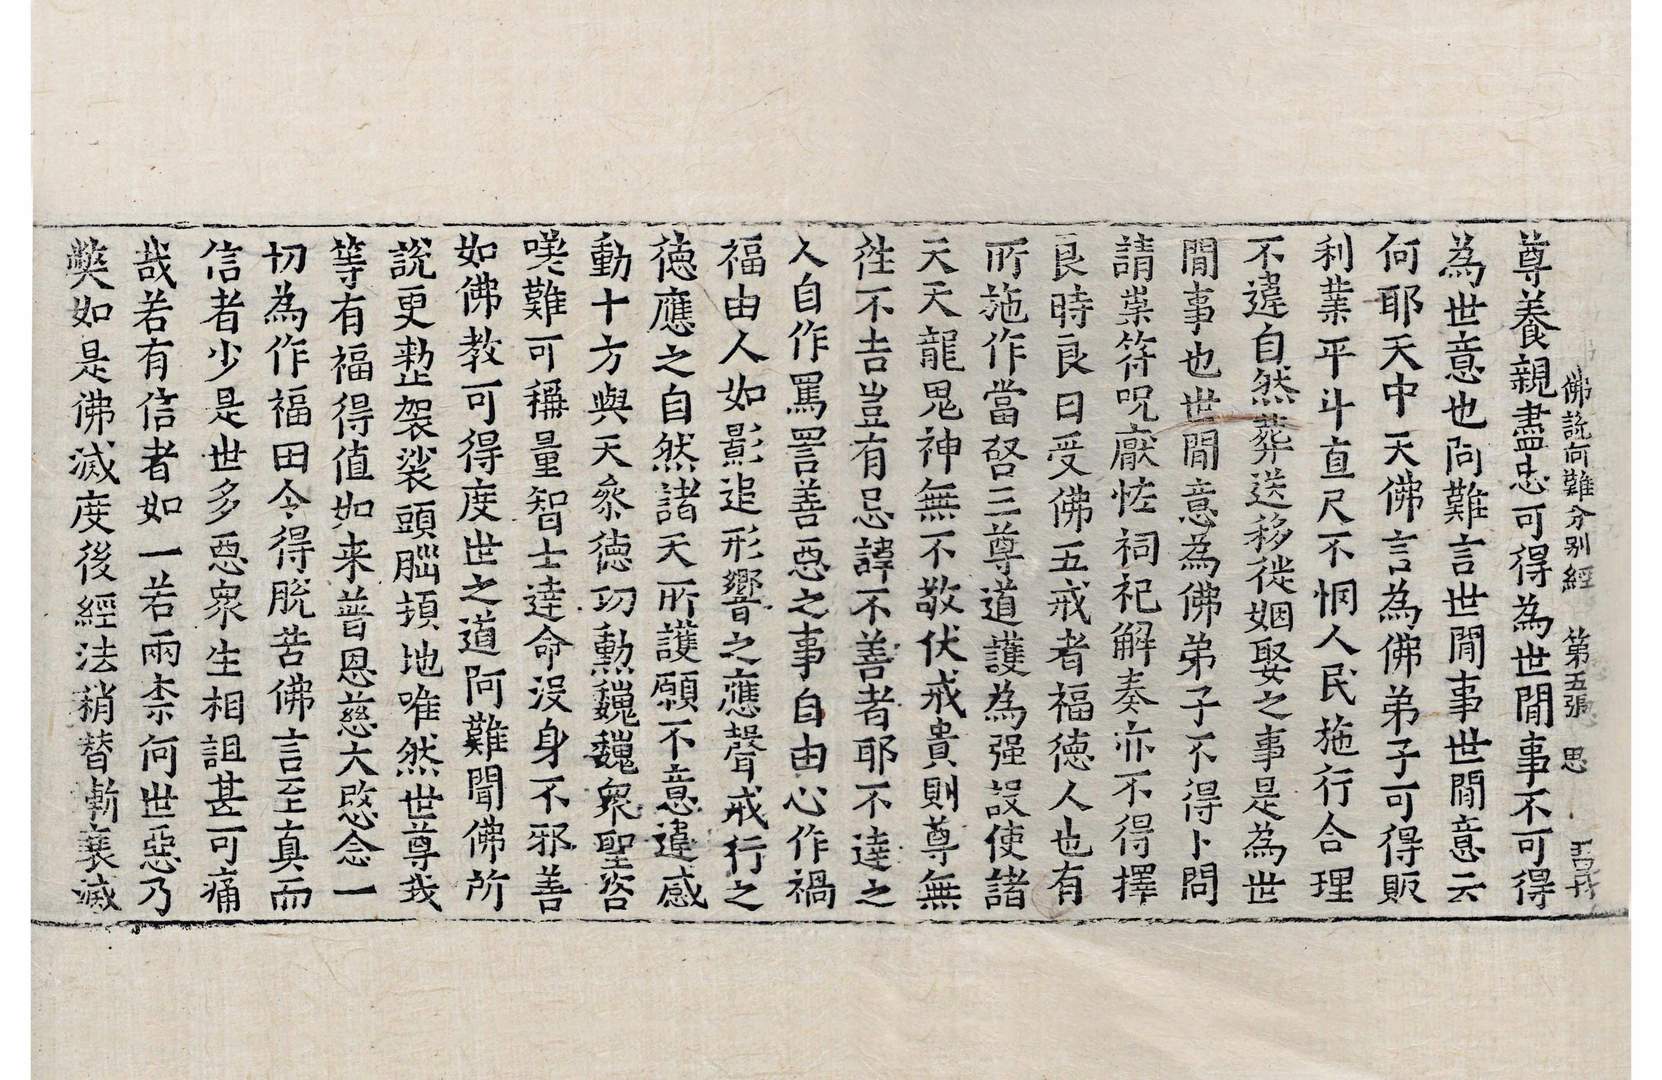 佛說阿難分别經 第五張 思
尊養親盡忠可得為世間事不可得
為世意也阿難言世間事世間意云
何耶天中天佛言為佛弟子可得販
利業平斗直尺不惘人民施行合理
不違自然葬送移徙姻娶之事是為世
間事也世間意為佛弟子不得卜問
請祟符呪厭恠祠祀解奏亦不得擇
良時良日受佛五戒者福德人也有
所施作當啓三尊道護為强設使諸
天天龍鬼神無不敬伏戒貴則尊無
往不吉豈有忌諱不善者耶不達之
人自作罵詈善惡之事自由心作禍
福由人如影追形響之應聲戒行之
德應之自然諸天所護願不意違感
動十方與天叅德㓛勲魏魏衆聖咨
嘆難可稱量智士達命沒身不邪善
如佛教可得度世之道阿難聞佛所
說更勑袈裟頭腦頓地唯然世尊我
等有福得值如来普恩慈大愍念一
切為作福田令得脫苦佛言至真而
信者少是世多惡衆生相詛甚可痛
哉若有信者如一若兩柰何世惡乃
弊如是佛滅度後經法稍替漸衰滅